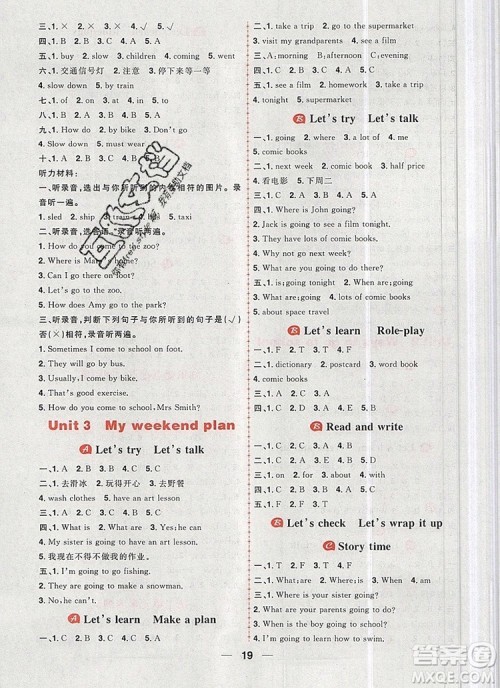 三、1. × 2. √ 3. × 4. × 5. √
四、1. B 2. A 3. C 4. A 5. A
五、1. buy 2. slow 3. coming 4. down 5. went
六、1. 交通信号灯 2. 注意 3. 停下来等一等
4. slow down 5. by train
七、1. of 2. at 3. to 4. on 5. to
八、1. B 2. B 3. A 4. B 5. B
九、1. How do 2. by bike 3. Don't go
4. Slow down 5. must wear
听力材料:
一、听录音,选出与你所听到的内容相符的图片。录
音听一遍。
1. sled 2. ship 3. 5. taxi
1. How do you come to the zoo?
2. Where is home?
3. Can I go there on foot?
4. Let's go to the zoo.
5. How does Amy go to the park?
三、听录音,判断下列句子与你所听到的句子是(√)
否(×)相符。录音听两遍。
1. Sometimes I come to school on foot.
2. They will go by bus.
3. Usually, I come by bike.
4. Don't go at the red light.
5. How do you come to school, Mrs Smith?
Unit 3 My weekend plan
A Let's try Let's talk
一、1. C 2. B 3. A
二、1. 去滑冰 2. 玩得开心 3. 去野餐
4. wash clothes 5. have an art lesson
三、1. A 2. B 3. A 4. A 5. A
四、1. What is 2. What are 3. Yes, I am
4. My sister is going to have an art lesson.
5. 我现在不得不做我的作业。
五、1. I am going to go fishing.
2. They are going to make a snowman.
3. No, they can't.
A Let's learn Make a plan
一、1. C 2. A 3. B 4. C 5. A
二、1. take a trip 2. go to the supermarket
3. visit my grandparents 4. see a film
三、A: morning B: afternoon C: evening
四、1. A 2. B 3. A 4. A 5. B
五、1. see a film 2. homework 3. take a trip
4. tonight 5. supermarket
B Let's try Let's talk
一、1. C 2. B 3. A
二、1. next week 2. comic books 3. half price
4. 看电影 5. 下周二
三、1. A 2. B 3. A 4. A 5. A
四、1. Where is John going?
2. Jack is going to see a film.
3. They have lots of comic books.
4. Why not go next week?
5. What are you going to do there?
五、1. tonight 2. going 3. What are
4. Where is 5. going to
六、1. cinema 2. Where 3. comic books
4. about space travel
B Let's learn Role-play
一、1. F 2. T 3. F 4. T
二、1. dictionary 2. postcard 3. word book
4. comic book
三、1. F 2. F 3. F 4. T 5. T
B Read and write
一、1. B 2. A 3. A 4. B 5. B
二、1. D 2. E 3. B 4. A 5. C
三、1. on 2. for 3. on 4. about 5. with
四、1. C 2. B 3. A 4. B 5. C
B Let's check Let's wrap it up
C Story time
一、1. C 2. A 3. B 4. A 5. B
二、1. What; are 2. Where; is 3. When; is
三、1. Where are you going?
2. What are your parents going to do?
3. When is the boy going to school?
4. I am going to learn how to swim.
19